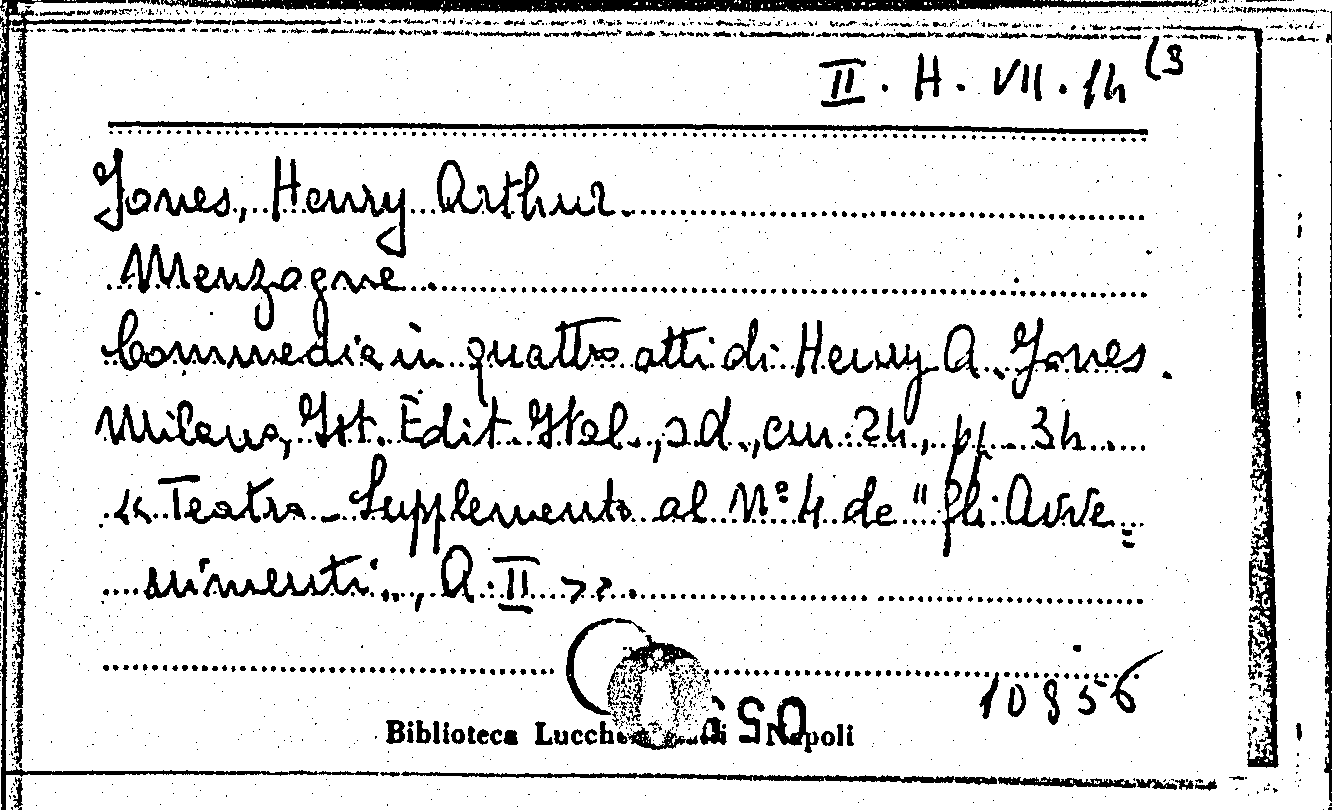 II. H. VII. 14 (3
Jones, Henry Arthur.
Menzogne.
Commedia in quattro atti di Henry A. Jones.
Milano, Ist. Edit. Ital., s.d., cm. 24, pp. 34.
« Teatro - Supplemento al N° 4 de "Gli Avve=
nimenti", A. II ».
Biblioteca Napoli